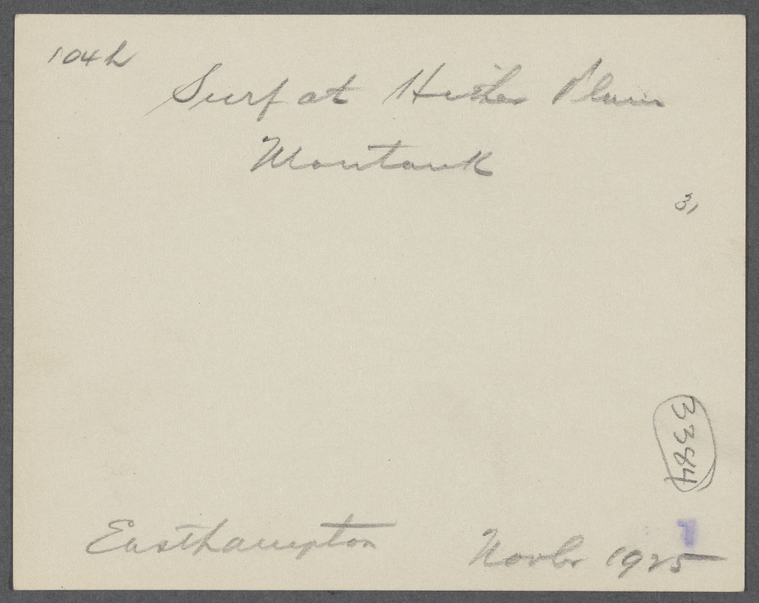 104h
Surf at Hither Plain
Montauk
31
3384
Easthampton Novbr 1925